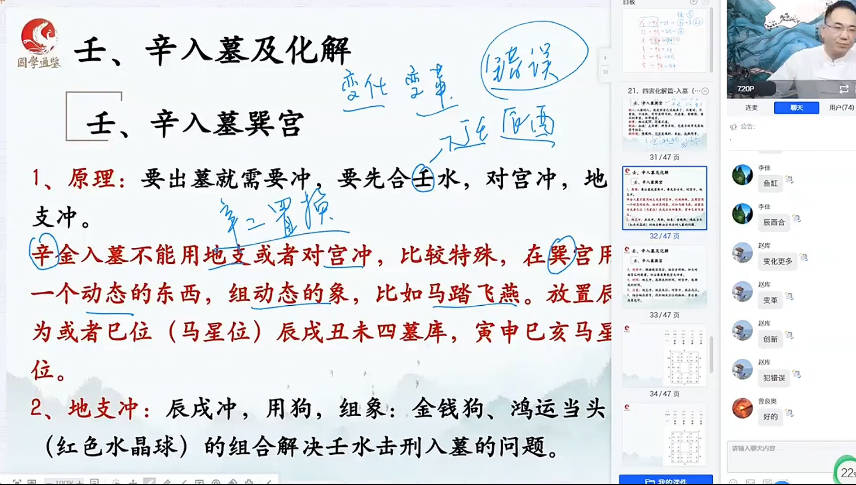 國學通鑒
壬、辛入墓及化解
变化 变革 错误
壬、辛入墓巽宫
辰酉
1、原理：要出墓就需要冲，要先合壬水，对宫冲，地
支冲。
辛金入墓不能用地支或者对宫冲，比较特殊，在巽宫用
一个动态的东西，组动态的象，比如马踏飞燕。放置辰
为或者巳位（马星位）辰戌丑未四墓库，寅申巳亥马星
位。
2、地支冲：辰戌冲，用狗，组象：金钱狗、鸿运当头
（红色水晶球）的组合解决壬水击刑入墓的问题。
白板
21. 四害化解篇-入墓（
31/47 页
32/47 页
33/47 页
34/47 页
我的课件
720P
连麦
聊天
用户(74)
公告:
李佳
鱼缸
李佳
辰酉合
赵库
变化更多
赵库
变革
赵库
创新
赵库
犯错误
曾良奥
好的
请输入聊天内容
22